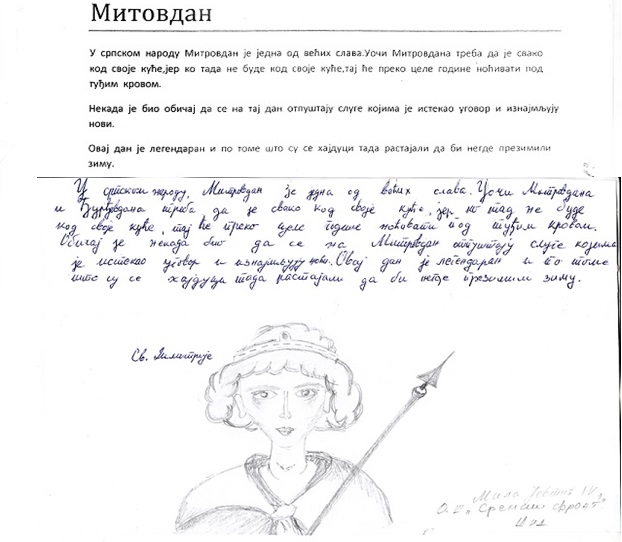 Митовдан
У српском народу Митровдан је једна од већих слава.Уочи Митровдана треба да је свако
код своје куће,јер ко тада не буде код своје куће,тај ће преко целе године ноћивати под
туђим кровом.
Некада је био обичај да се на тај дан отпуштају слуге којима је истекао уговор и изнајмљују
нови.
Овај дан је легендаран и по томе што су се хајдуци тада растајали да би негде презимили
зиму.
У српском народу, Митровдан је једна од већих слава. Уочи Митровдана
и Ђурђевдана треба да је свако код своје куће, јер ко тад не буде
код своје куће, тај ће преко целе године ноћивати под туђим кровом.
Обичај је некада био да се на Митровдан отпуштају слуге којима
је истекао уговор и изнајмљују нови. Овај дан је легендаран и по томе
што су се хајдуци тада растајали да би негде презимили зиму.
Св. Димитрије
Мила
О.Ш. „Сремски фронт"
Шид